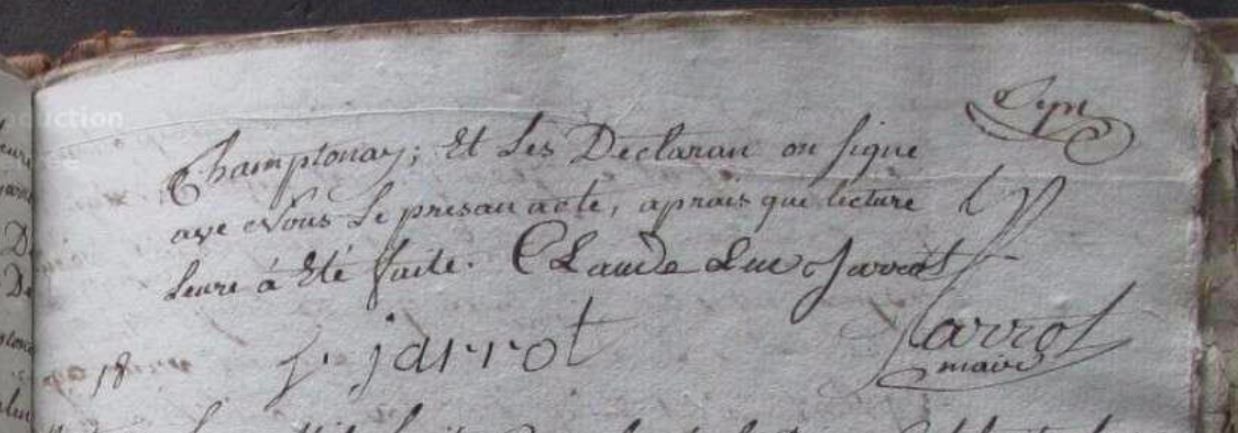 Champlonay; Et Les Declaran on signe
ave Nous Le presan acte, aprais que lecture
Leure à Eté faite. Claude Luc Jarrot
j. jarrot
Jarrot
maire